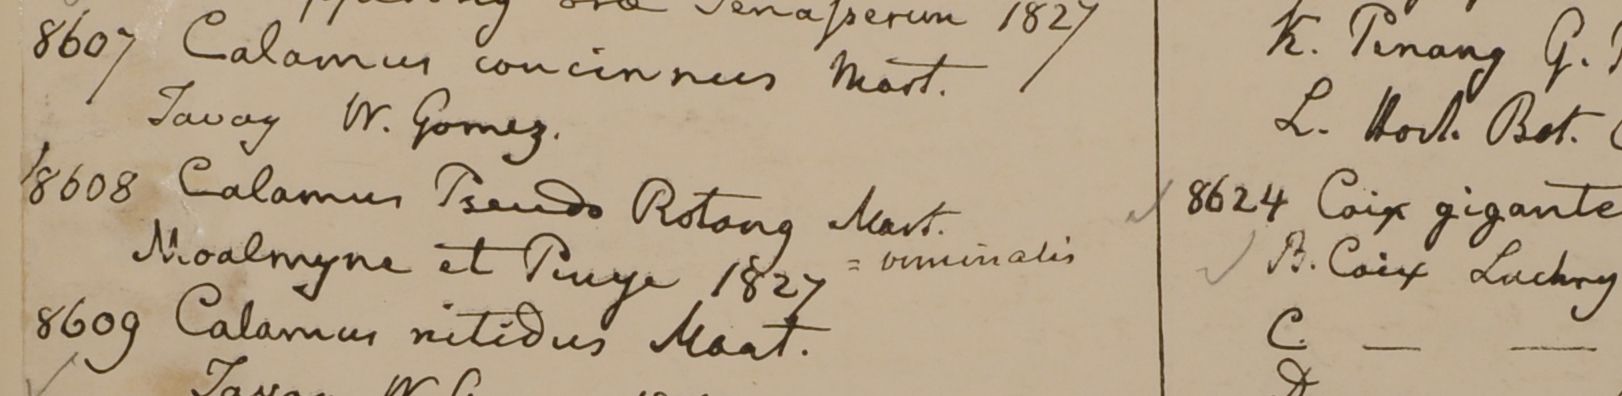 oræ Tenasserim 1827
8607 Calamus concinnus Mart.
Tavoy W. Gomez.
8608 Calamus Pseudo Rotang Mart.
= viminalis
Moalmyne et Peuge 1827
8609 Calamus nitidus Mart.
Tavoy W. G
K. Penang G.
L. Hort. Bot.
8624 Coix gigante
B. Coix Lachry
C. — —
D